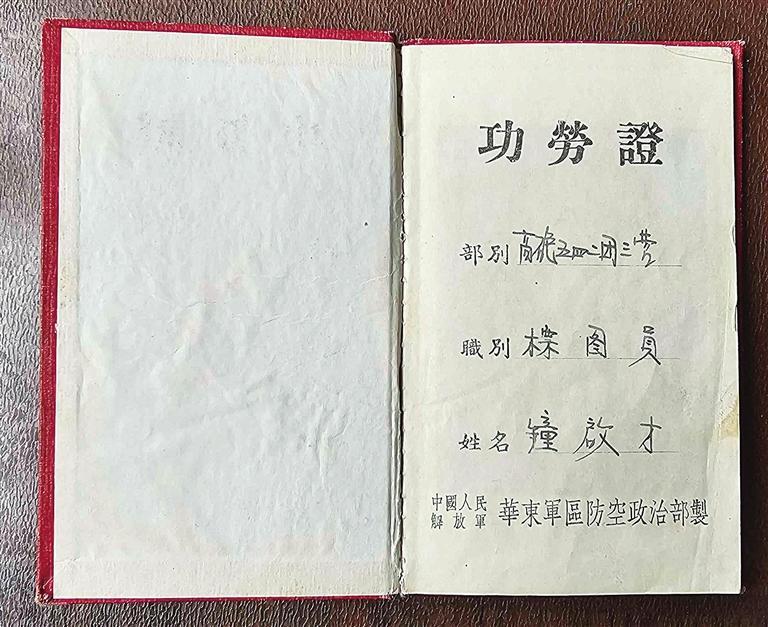 功勞證
部別 高砲五四二团三营
職別 標图員
姓名 鐘啟才
中國人民解放軍 華東軍區防空政治部製